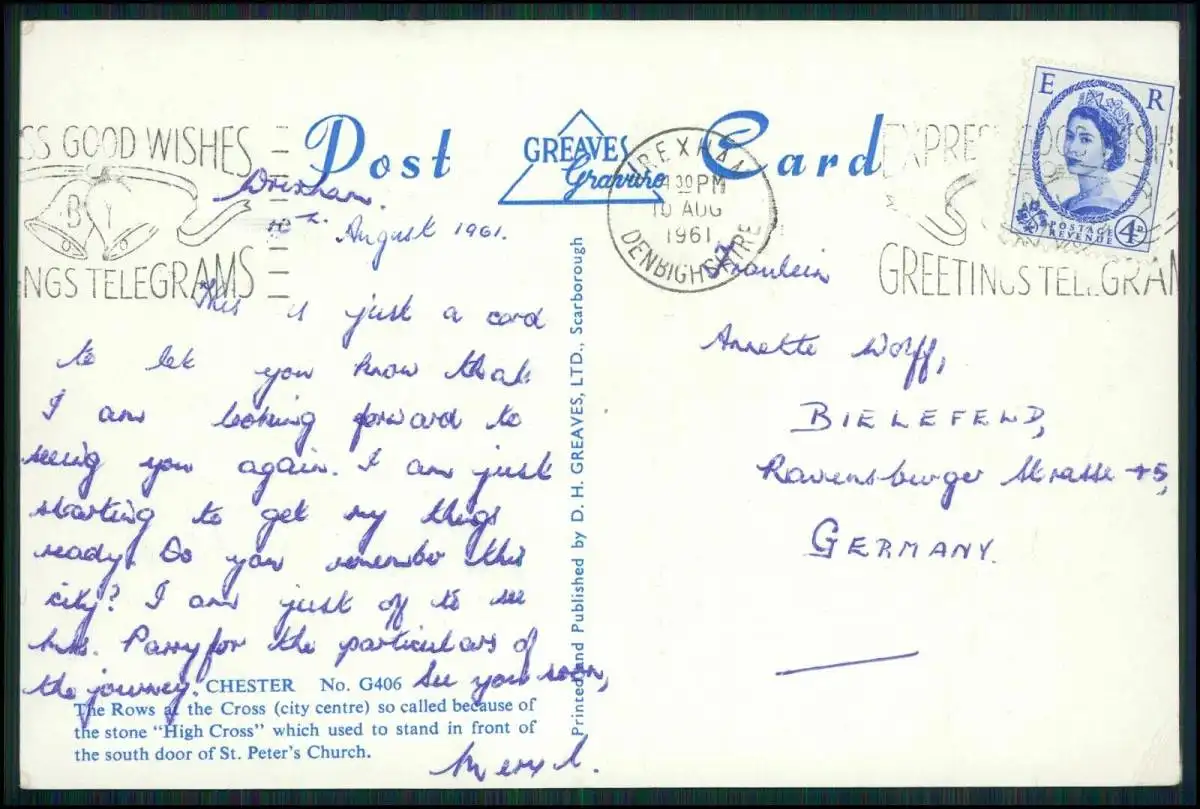 SS GOOD WISHES
BY
NGS TELEGRAMS
Post Card
GREAVES
Gravuro
WREXHAM
4 30 PM
10 AUG
1961
DENBIGHSHIRE
EXPRESS GOOD WISHES
GREETINGS TELEGRAM
E R
POSTAGE
REVENUE
4D
Wrexham.
10th August 1961.
This is just a card
to let you know that
I am looking forward to
seeing you again. I am just
starting to get my things
ready. Do you remember this
city? I am just off to see
Mrs. Parry for the particulars of
the journey. See you soon,
Meryl.
CHESTER No. G406
The Rows at the Cross (city centre) so called because of
the stone "High Cross" which used to stand in front of
the south door of St. Peter's Church.
Printed and Published by D. H. GREAVES, LTD., Scarborough
Fraulein
Annette Wolff,
BIELEFELD,
Ravensburger Strasse 45,
GERMANY.